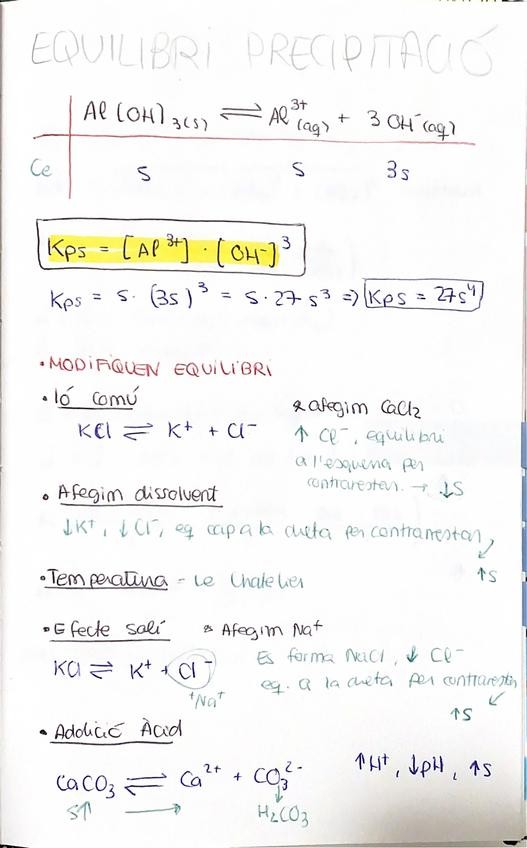 EQUILIBRI PRECIPITACIÓ
Al(OH)₃(s) ⇌ Al³⁺(aq) + 3 OH⁻(aq)
Ce s s 3s
Kps = [Al³⁺] · [OH⁻]³
Kps = s · (3s)³ = s · 27s³ => Kps = 27s⁴
• MODIFIQUEN EQUILIBRI
• Ió comú
* afegim CaCl₂
KCl ⇌ K⁺ + Cl⁻
↑ Cl⁻, equilibri
a l'esquerra per
contrarestar. → ↓S
• Afegim dissolvent
↓K⁺, ↓Cl⁻, eq cap a la dreta per contrarestar,
↑S
• Temperatura - Le Chatelier
• Efecte salí * Afegim Na⁺
KCl ⇌ K⁺ + Cl⁻
+Na⁺
Es forma NaCl, ↓ Cl⁻
eq. a la dreta per contrarestar
↑S
• Addició Àcid
CaCO₃ ⇌ Ca²⁺ + CO₃²⁻
↑H⁺, ↓pH, ↑S
S↑ → H₂CO₃